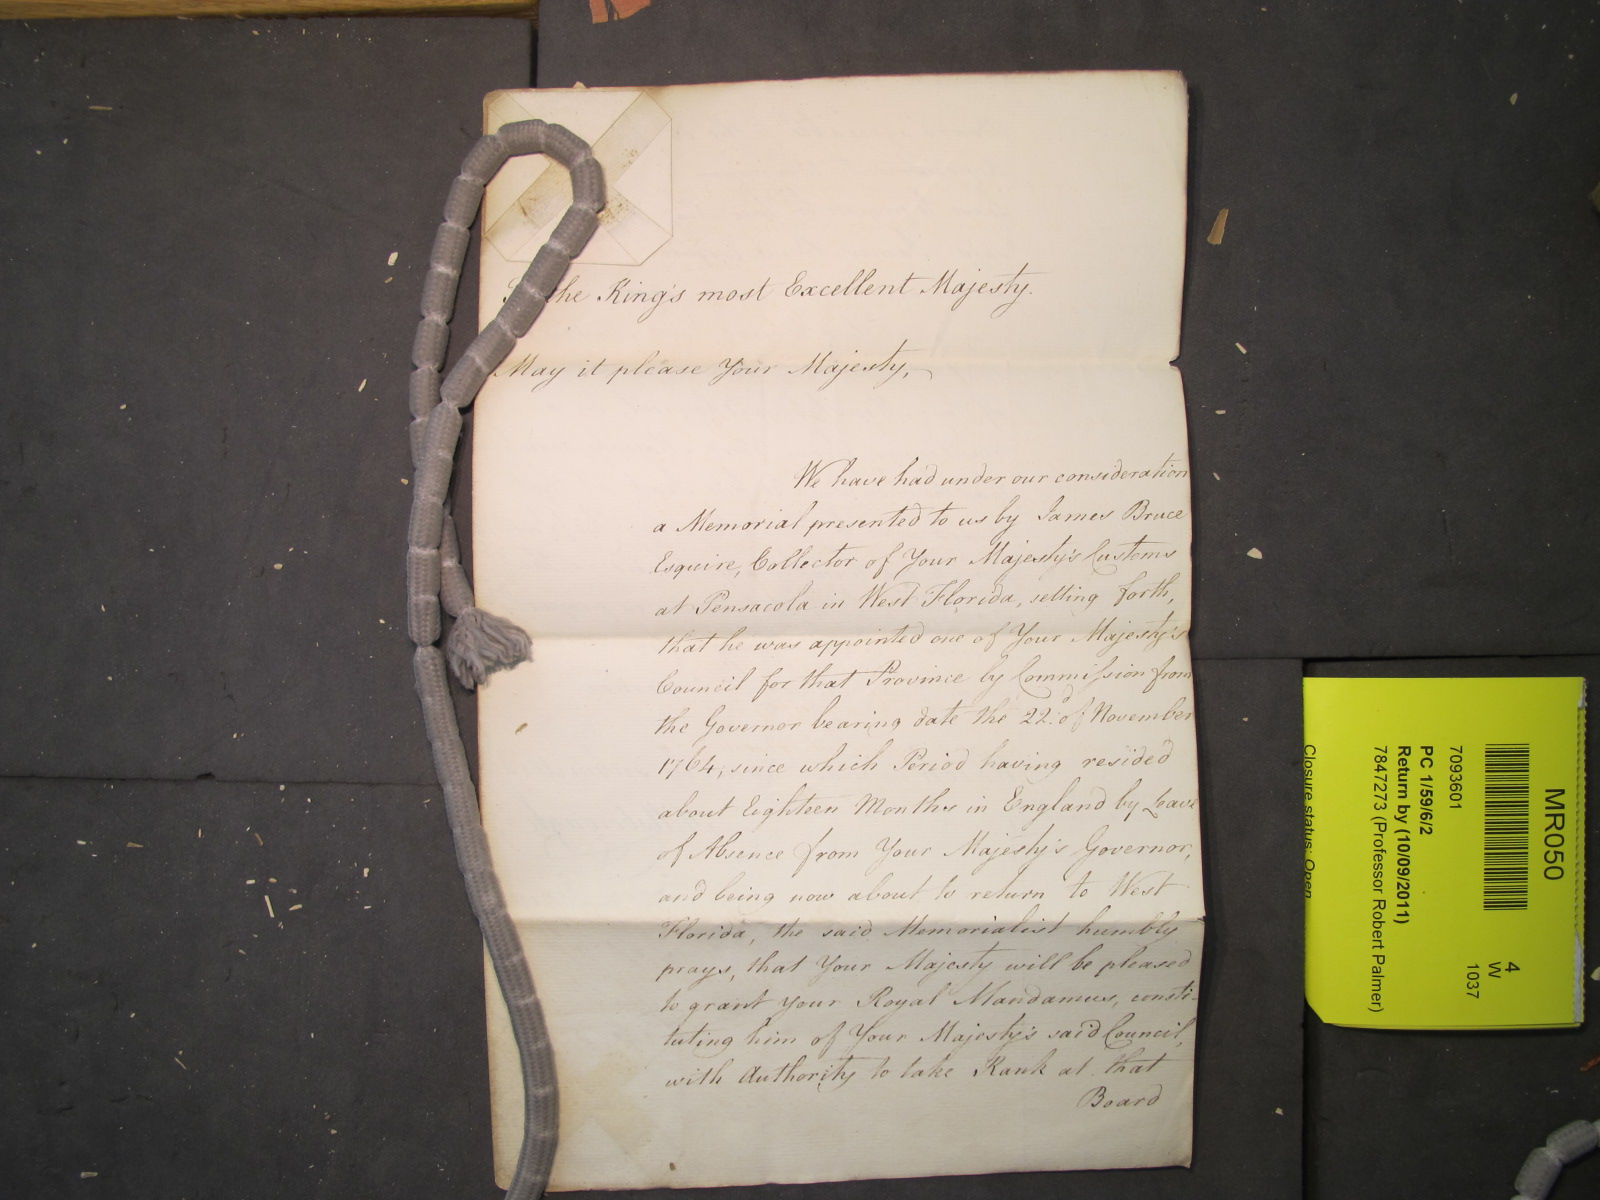 To the King's most Excellent Majesty.
May it please Your Majesty,
We have had under our consideration
a Memorial presented to us by James Bruce
Esquire, Collector of Your Majesty's Customs
at Pensacola in West Florida, setting forth,
that he was appointed one of Your Majesty's
Council for that Province by Commission from
the Governor bearing date the 22.d of November
1764, since which Period having resided
about Eighteen Months in England by Leave
of Absence from Your Majesty's Governor,
and being now about to return to West
Florida, the said Memorialist humbly
prays, that Your Majesty will be pleased
to grant your Royal Mandamus, consti-
tuting him of Your Majesty's said Council,
with Authority to take Rank at that
Board
MR050
4
W
1037
7093601
PC 1/59/6/2
Return by (10/09/2011)
7847273 (Professor Robert Palmer)
Closure status: Open